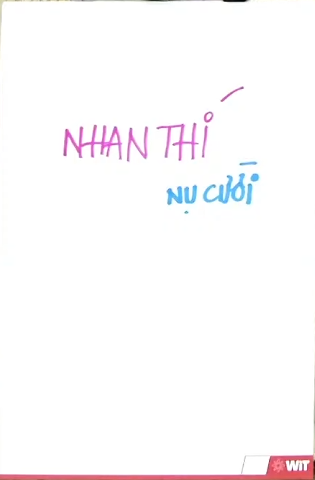 NHAN THÍ
NỤ CƯỜI
WIT